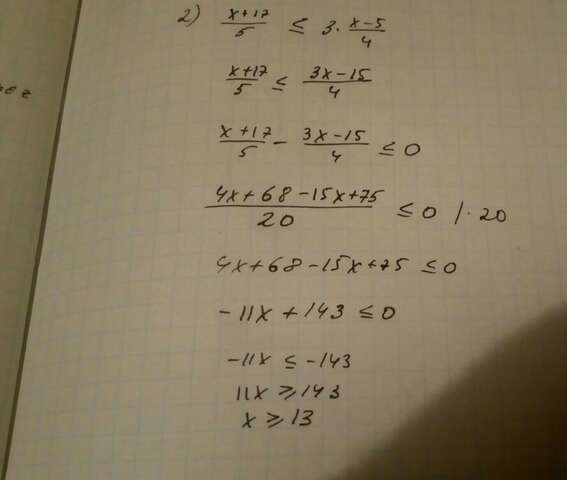 2) (x+17)/5 ≤ 3·(x-5)/4
(x+17)/5 ≤ (3x-15)/4
(x+17)/5 - (3x-15)/4 ≤ 0
(4x+68-15x+75)/20 ≤ 0 /·20
4x+68-15x+75 ≤ 0
-11x+143 ≤ 0
-11x ≤ -143
11x ≥ 143
x ≥ 13